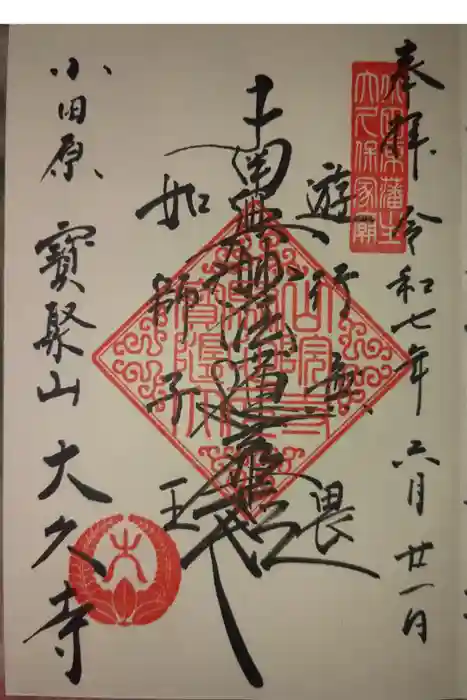 奉拝 令和七年 六月 廿一日
大久保家廟
遊行無畏
南無妙法蓮華経
如師子王
小田原 寶聚山 大久寺
大